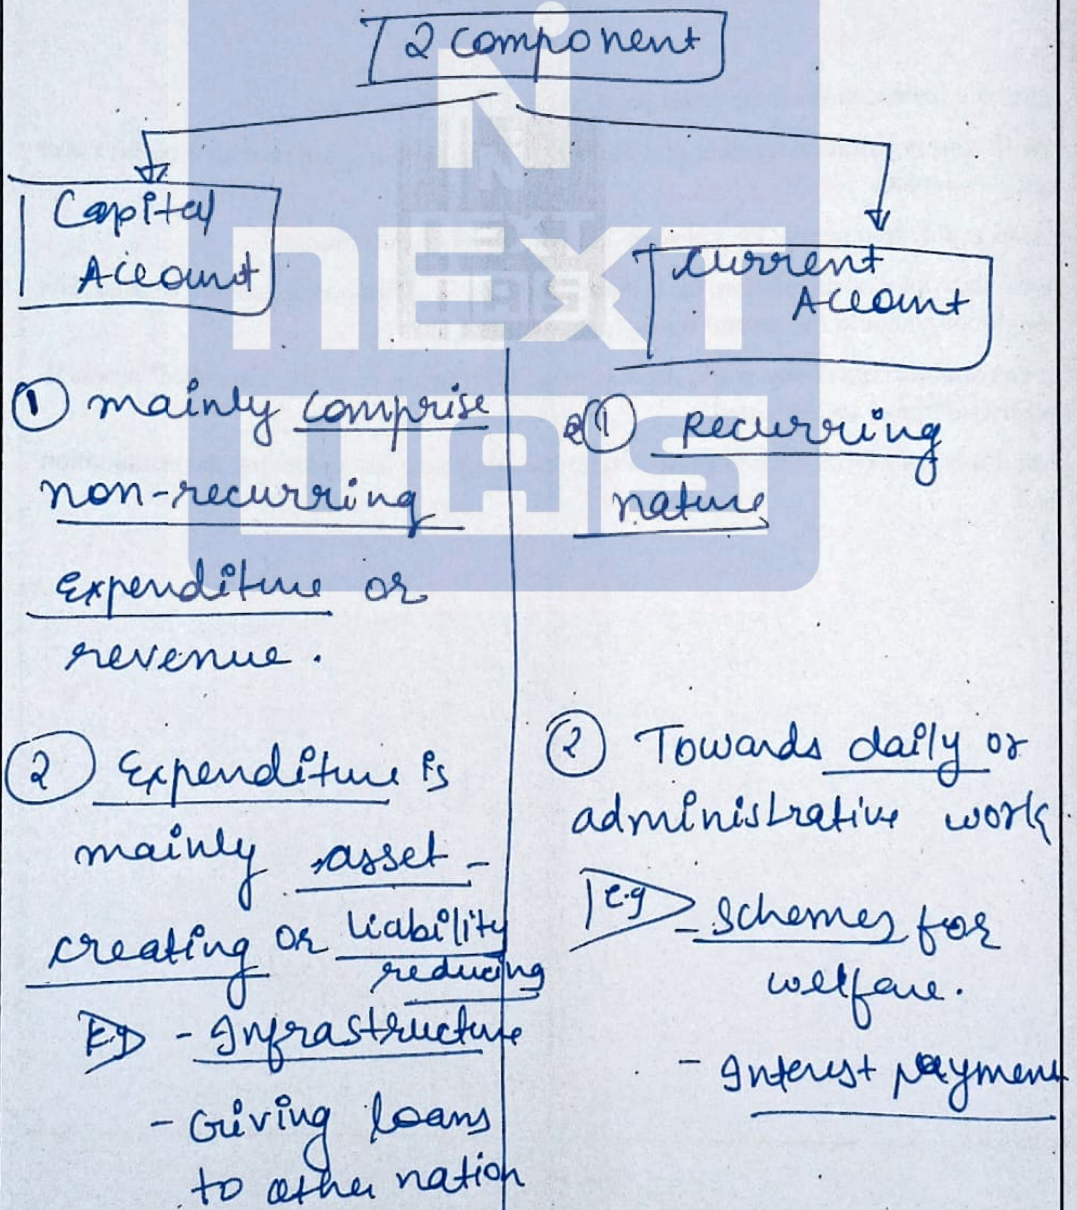 2 component
Capital
Account
Current
Account
① mainly comprise
non-recurring
Expenditure or
revenue.
② Expenditure is
mainly asset -
creating or liability
reducing
E.g - Infrastructure
- Giving loans
to other nation
① Recurring
nature
② Towards daily or
administrative work
e.g - Schemes for
welfare.
- Interest payment
NEXT
IAS